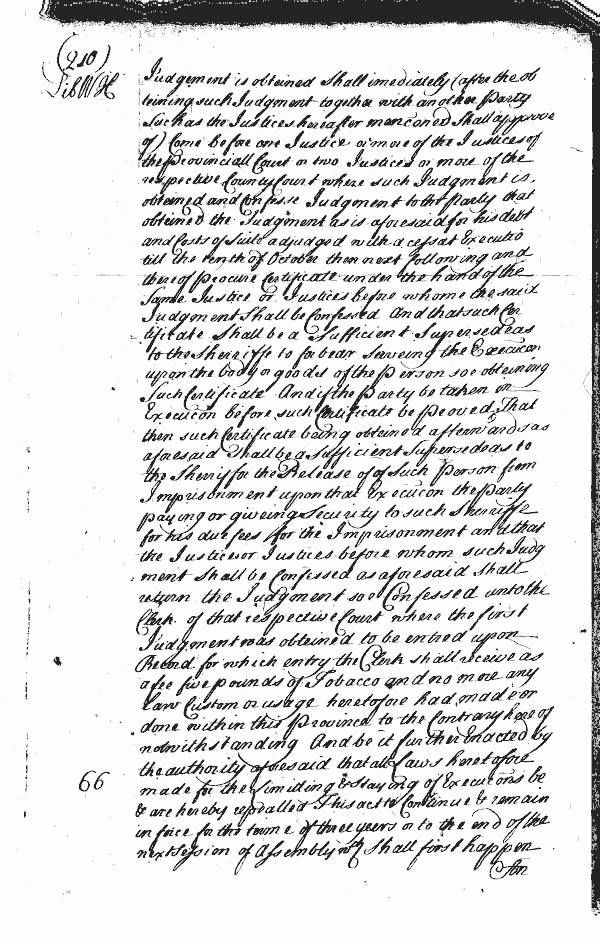 (210)
Lib WH
Judgement is obtained Shall imediately (after the ob
teining such Judgment together with another Party
Such as the Justices hereafter menconed Shall approve
of) Come before one Justice or more of the Justices of
the Provinciall Court or two Justices or more of the
respective County Court where such Judgment is,
obteined and Confesse Judgment to that Party that
obteined the Judgment as is aforesaid for his debt
and Costs of Suite adjudged with a cessat Executio
till the tenth of October then next following and
thereof procure Certificate under the hand of the
Same Justice or Justices before whome the said
Judgment Shall be Confessed And that such Cer
tificate Shall be a Sufficient Supersedeas
to the Sherriffe to forbear Serveing the Execucon
upon the body or goods of the Person soe obteining
Such Certificate And if the Party be taken in
Execucon before such Certificate be proved, That
then such Certificate being obteined afterwards as
aforesaid Shall be a sufficient Supersedeas to
the Sherriff for the Release of of Such Person from
Imprisonment upon that Execucon the Party
paying or giveing Security to such Sherriffe
for his due fees for the Imprisonment and that
the Justice or Justices before whom such Judg
ment Shall be Confessed as aforesaid Shall
return the Judgment soe Confessed unto the
Clerk of that respective Court where the first
Judgment was obteined to be entred upon
Record for which entry the Clerk shall receive as
a fee five pounds of Tobacco and no more any
Law Custom or usage heretofore had made or
done within this Province to the Contrary hereof
notwithstanding And be it further Enacted by
the authority aforesaid that all Laws heretofore
made for the Limiting & Staying of Execucons be
& are hereby repealled This act to Continue & remain
in force for the terme of three years or to the end of the
next Session of Assembly wch Shall first happen
66